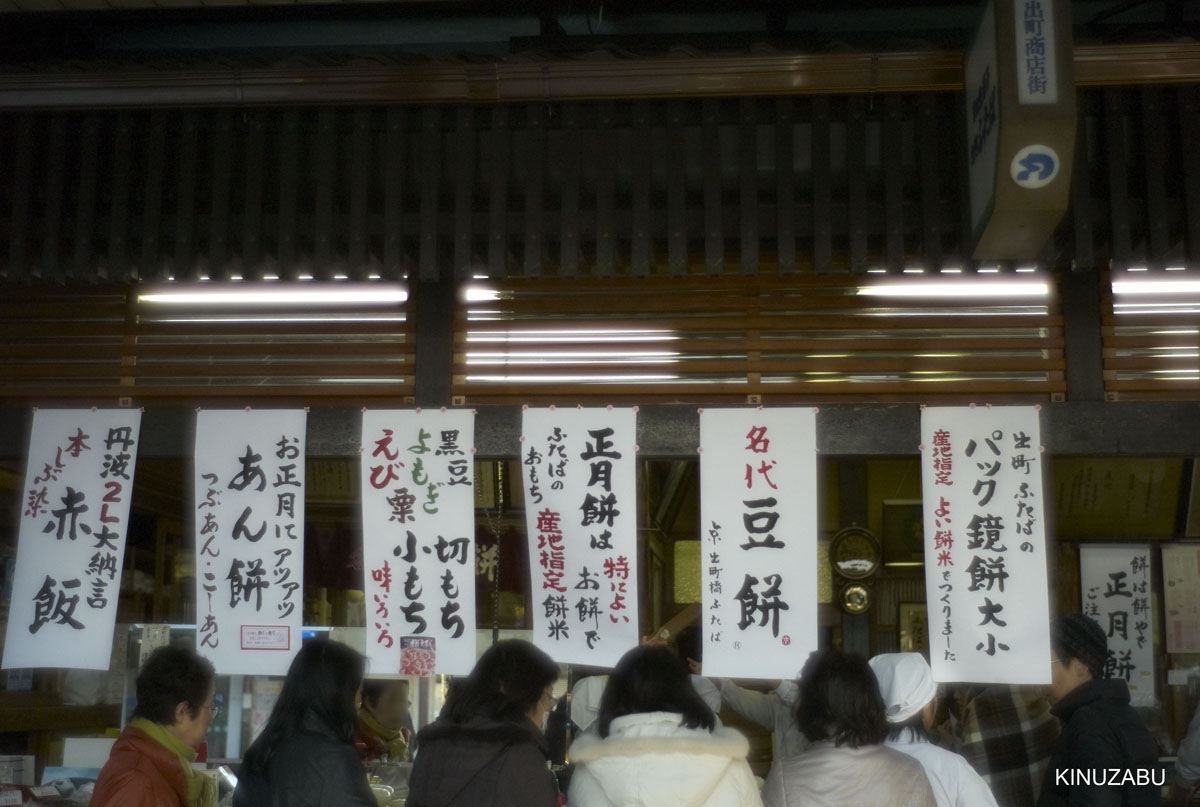 出町商店街
丹波2L大納言
本しぶ染
赤飯
お正月にアツアツ
あん餅
つぶあん・こーあん
黒豆
よもぎ
えび
粟
切もち
小もち
味いろいろ
正月餅は
ふたばの
おもち
特によい
お餅で
産地指定餅米
名代
豆餅
京・出町橋ふたば
出町ふたばの
パック鏡餅大小
産地指定
よい餅米でつくりました
餅は餅やで
正月餅
ご注
KINUZABU